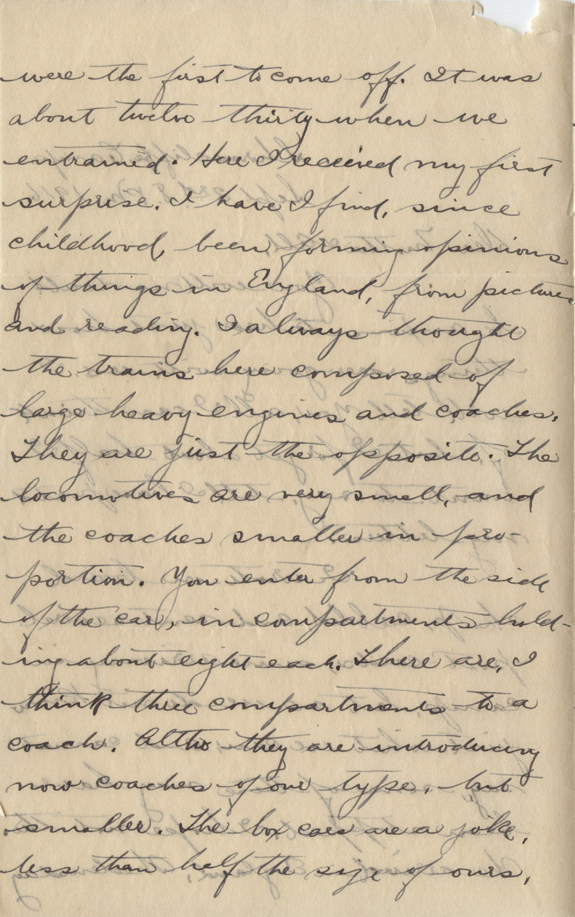 were the first to come off. It was
about twelve thirty when we
entrained. Here I received my first
surprise. I have I find, since
childhood, been forming opinions
of things in England, from pictures
and reading. I always thought
the trains here composed of
large heavy engines and coaches.
They are just the opposite. The
locomotives are very small, and
the coaches smaller in pro-
portion. You enter from the side
of the car, in compartments hold-
ing about eight each. There are, I
think three compartments to a
coach. Altho they are introducing
now coaches of our type, but
smaller. The box cars are a joke,
less than half the size of ours,